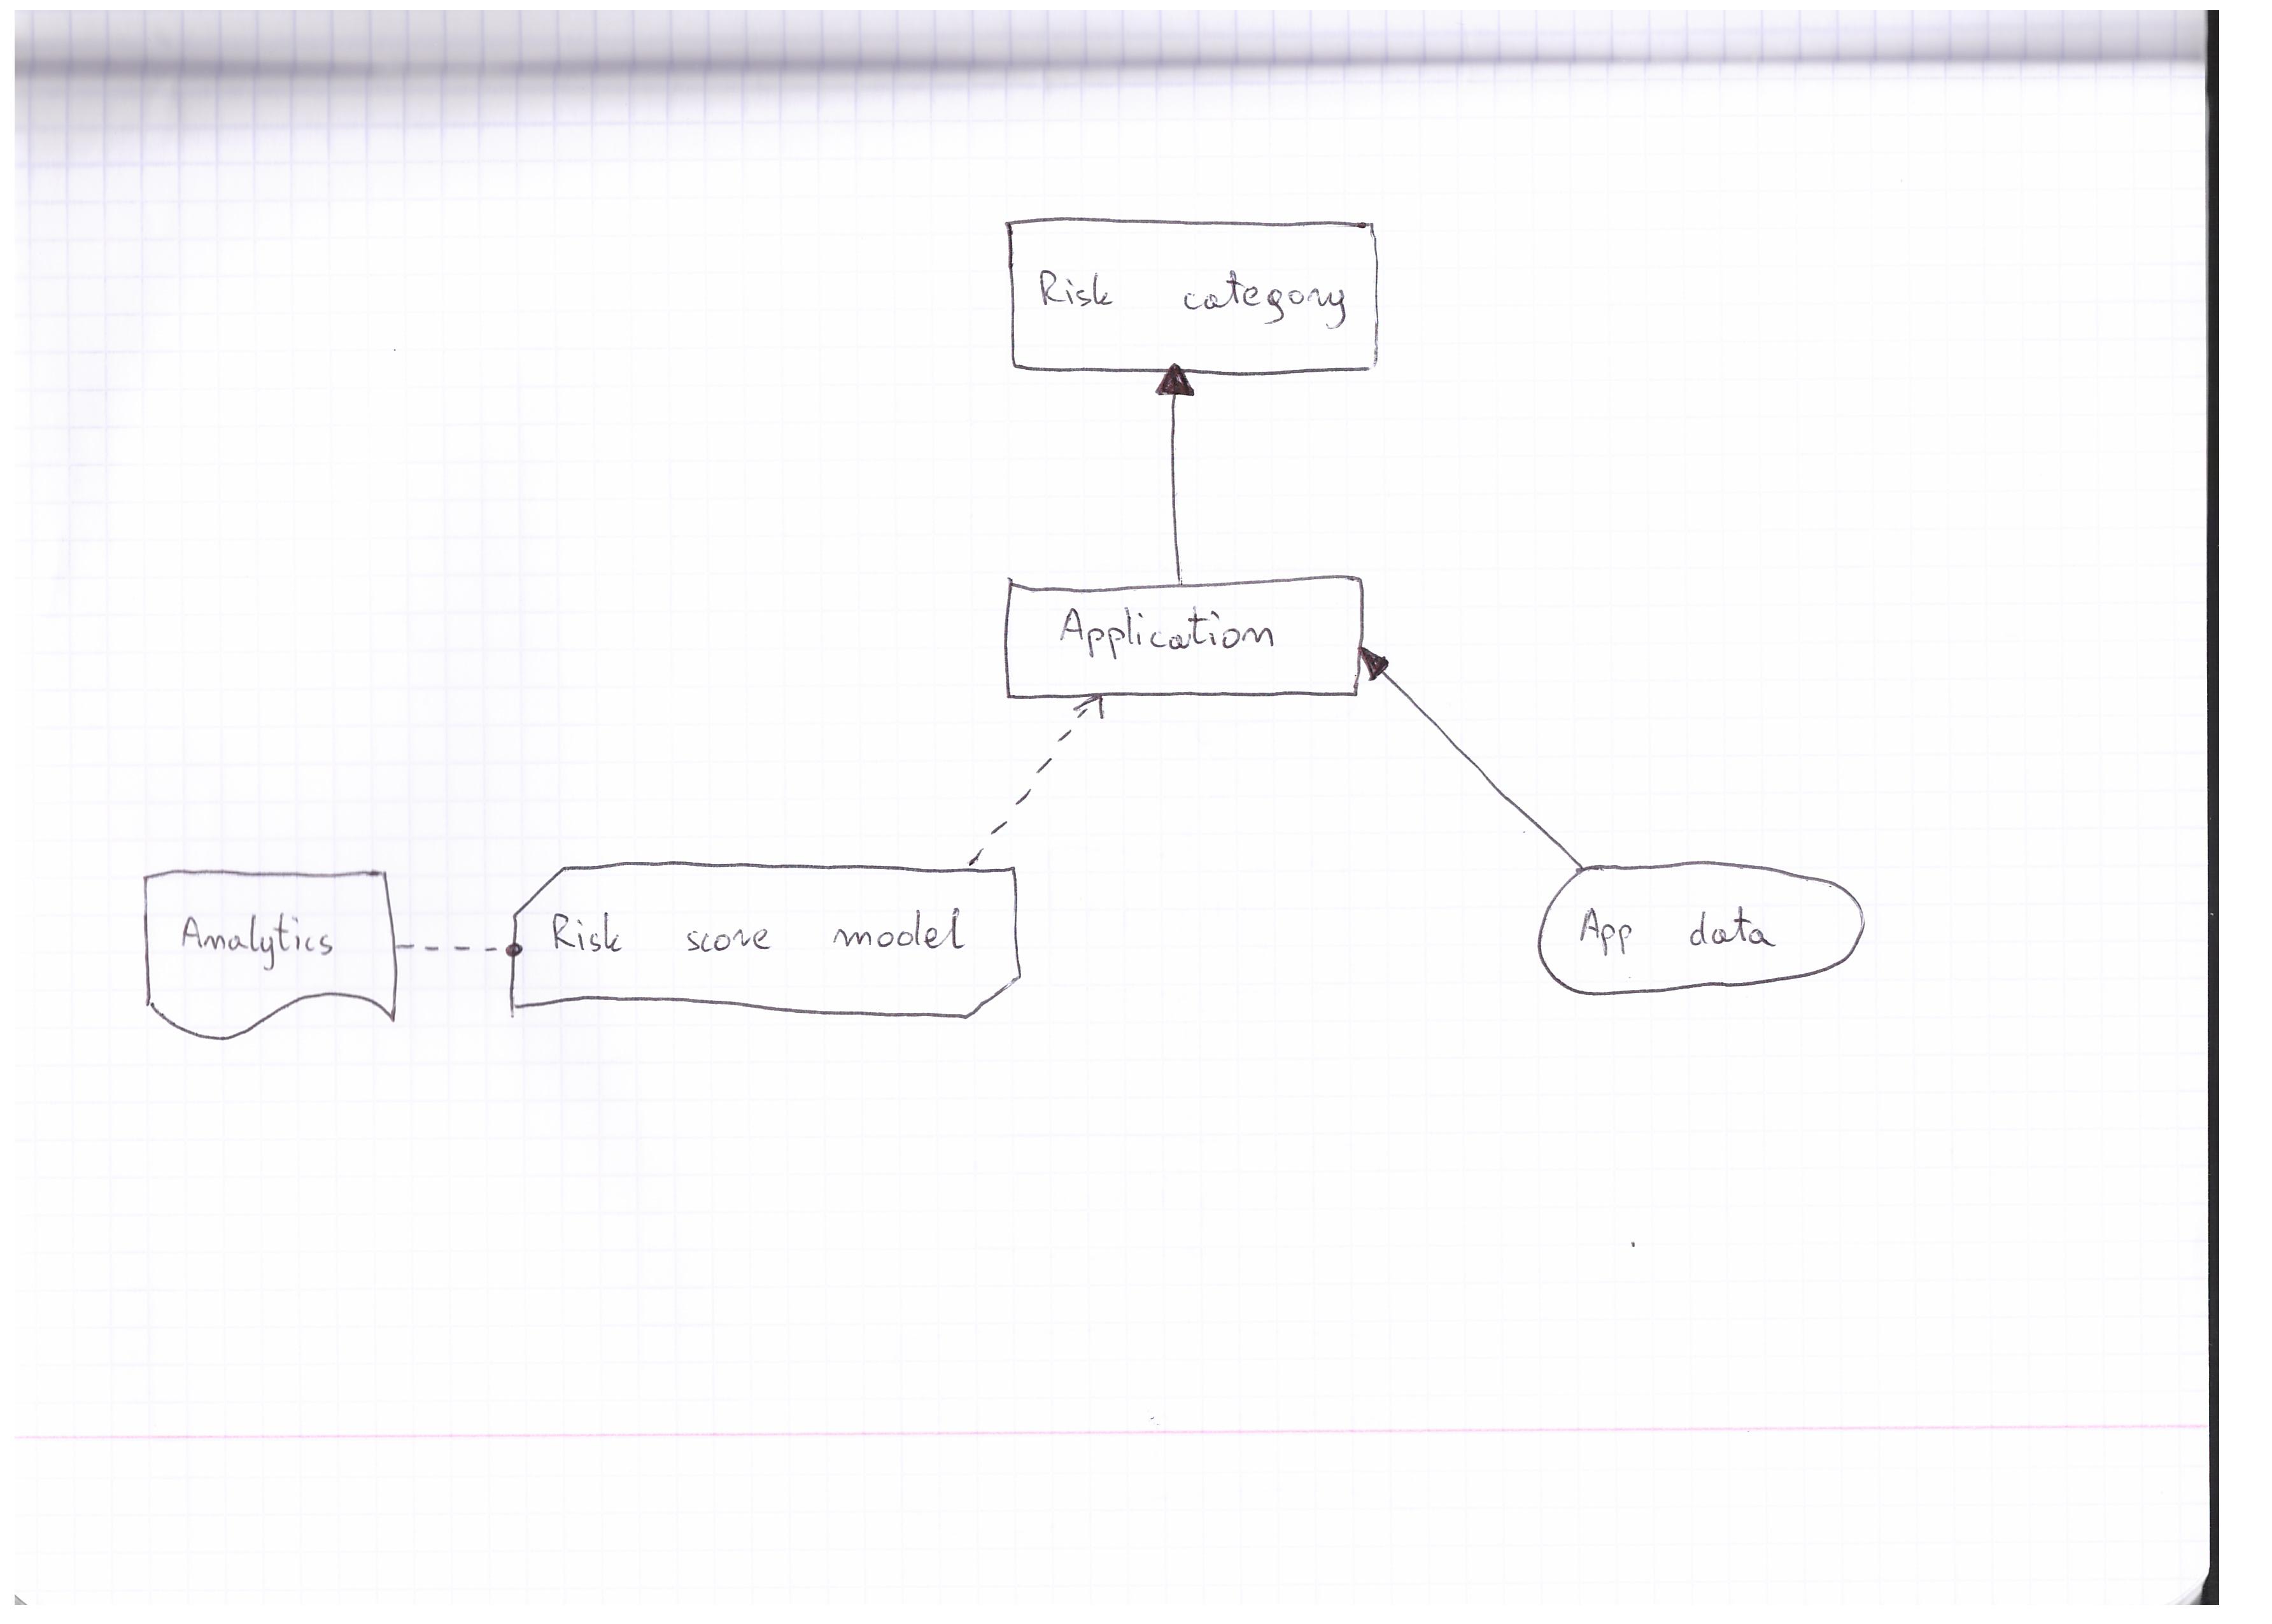 Risk category
Application
Analytics
Risk score model
App data